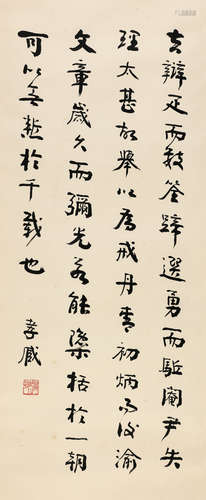 夫辯疋而數筌蹄選勇而駈閹尹失
理太甚故舉以為戒丹青初炳而後渝
文章歲久而彌光若能檃括於一朝
可以無慙於千載也
孝臧